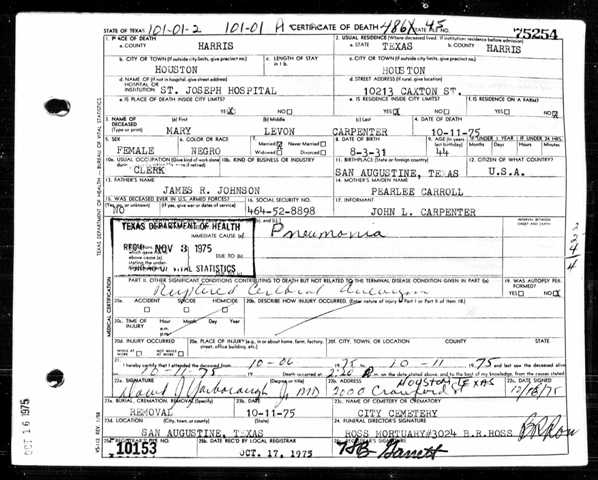 STATE OF TEXAS 101-01-2 101-01 A CERTIFICATE OF DEATH STATE FILE NO. 75254
1. PLACE OF DEATH 2. USUAL RESIDENCE (Where deceased lived. If institution: residence before admission)
a. COUNTY HARRIS a. STATE TEXAS b. COUNTY HARRIS
b. CITY OR TOWN (If outside city limits, give precinct no.) c. LENGTH OF STAY c. CITY OR TOWN (If outside city limits, give precinct no.)
HOUSTON HOUSTON
d. NAME OF (If not in hospital, give street address) d. STREET ADDRESS (If rural, give location)
HOSPITAL OR
INSTITUTION ST. JOSEPH HOSPITAL 10213 CAXTON ST.
e. IS PLACE OF DEATH INSIDE CITY LIMITS? e. IS RESIDENCE INSIDE CITY LIMITS? f. IS RESIDENCE ON A FARM?
YES X NO YES X NO YES NO X
3. NAME OF DECEASED (Type or print) (a) First (b) Middle (c) Last 4. DATE OF DEATH
MARY LEVON CARPENTER 10-11-75
5. SEX 6. COLOR OR RACE 7. Married Never Married Widowed Divorced 8. DATE OF BIRTH 9. AGE IF UNDER 1 YEAR IF UNDER 24 HRS.
Months Days Hours Minutes
FEMALE NEGRO 8-3-31 44
10a. USUAL OCCUPATION (Give kind of work done 10b. KIND OF BUSINESS OR INDUSTRY 11. BIRTHPLACE (State or foreign country) 12. CITIZEN OF WHAT COUNTRY?
CLERK SAN AUGUSTINE, TEXAS U.S.A.
13. FATHER'S NAME 14. MOTHER'S MAIDEN NAME
JAMES R. JOHNSON PEARLEE CARROLL
15. WAS DECEASED EVER IN U.S. ARMED FORCES? 16. SOCIAL SECURITY NO. 17. INFORMANT
(Yes, no, or unknown) (If yes, give war or dates of service)
NO 464-52-8898 JOHN L. CARPENTER
TEXAS DEPARTMENT OF HEALTH
IMMEDIATE CAUSE (a) Pneumonia
REC'D NOV 3 1975 DUE TO (b)
BUREAU OF VITAL STATISTICS DUE TO (c)
PART II. OTHER SIGNIFICANT CONDITIONS CONTRIBUTING TO DEATH BUT NOT RELATED TO THE TERMINAL DISEASE CONDITION GIVEN IN PART I(a) 19. WAS AUTOPSY PERFORMED?
Ruptured Cerebral Aneurysm YES NO X
20a. ACCIDENT SUICIDE HOMICIDE 20b. DESCRIBE HOW INJURY OCCURRED. (Enter nature of injury in Part I or Part II of item 18.)
20c. TIME OF INJURY Hour Month Day Year
a.m.
p.m.
20d. INJURY OCCURRED 20e. PLACE OF INJURY (e.g., in or about home, farm, factory, street, office building, etc.) 20f. CITY, TOWN, OR LOCATION COUNTY STATE
WHILE AT WORK NOT WHILE AT WORK
21. I hereby certify that I attended the deceased from 75 10-11 1975 and last saw the deceased
75 Death occurred at on the date stated above, and to the best of my knowledge, from the causes stated
22a. SIGNATURE (Degree or title) 22b. ADDRESS HOUSTON, TEXAS 22c. DATE SIGNED
David J Yarborough Jr, MD 2000 Crawford
23a. BURIAL, CREMATION, REMOVAL 23b. DATE 23c. NAME OF CEMETERY OR CREMATORY
REMOVAL 10-11-75 CITY CEMETERY
23d. LOCATION (City, town, or county) (State) 24. FUNERAL DIRECTOR'S SIGNATURE
SAN AUGUSTINE, TEXAS ROSS MORTUARY#3024 B.R.ROSS
25a. REGISTRAR'S FILE NO. 25b. DATE REC'D BY LOCAL REGISTRAR 25c. REGISTRAR'S SIGNATURE
10153 OCT 17 1975
TEXAS DEPARTMENT OF HEALTH - BUREAU OF VITAL STATISTICS
MEDICAL CERTIFICATION
OCT 16 1975
2
2
4
4